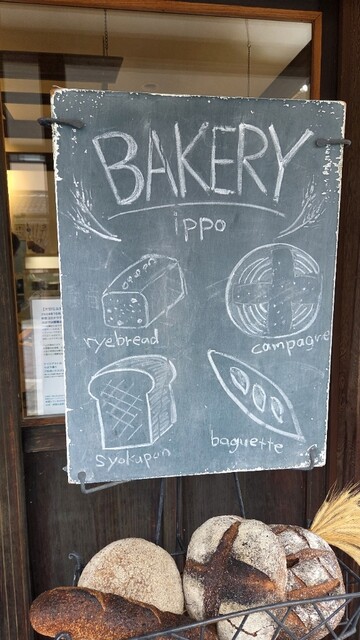 BAKERY
ippo
ryebread
campagne
syokupan
baguette